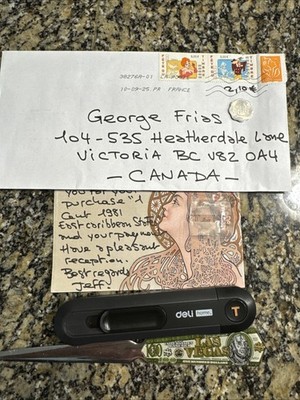 38270A-01
10-09-25 PA FRANCE
2,10€
George Frias
104-535 Heatherdale Lane
VICTORIA BC V8Z 0A4
- CANADA -
you for your
purchase:
1 Cent 1981
East caribbean States
and your payment
Have a pleasant
reception.
Best regards
Jeff.
deli home
T
LAS
VEGAS